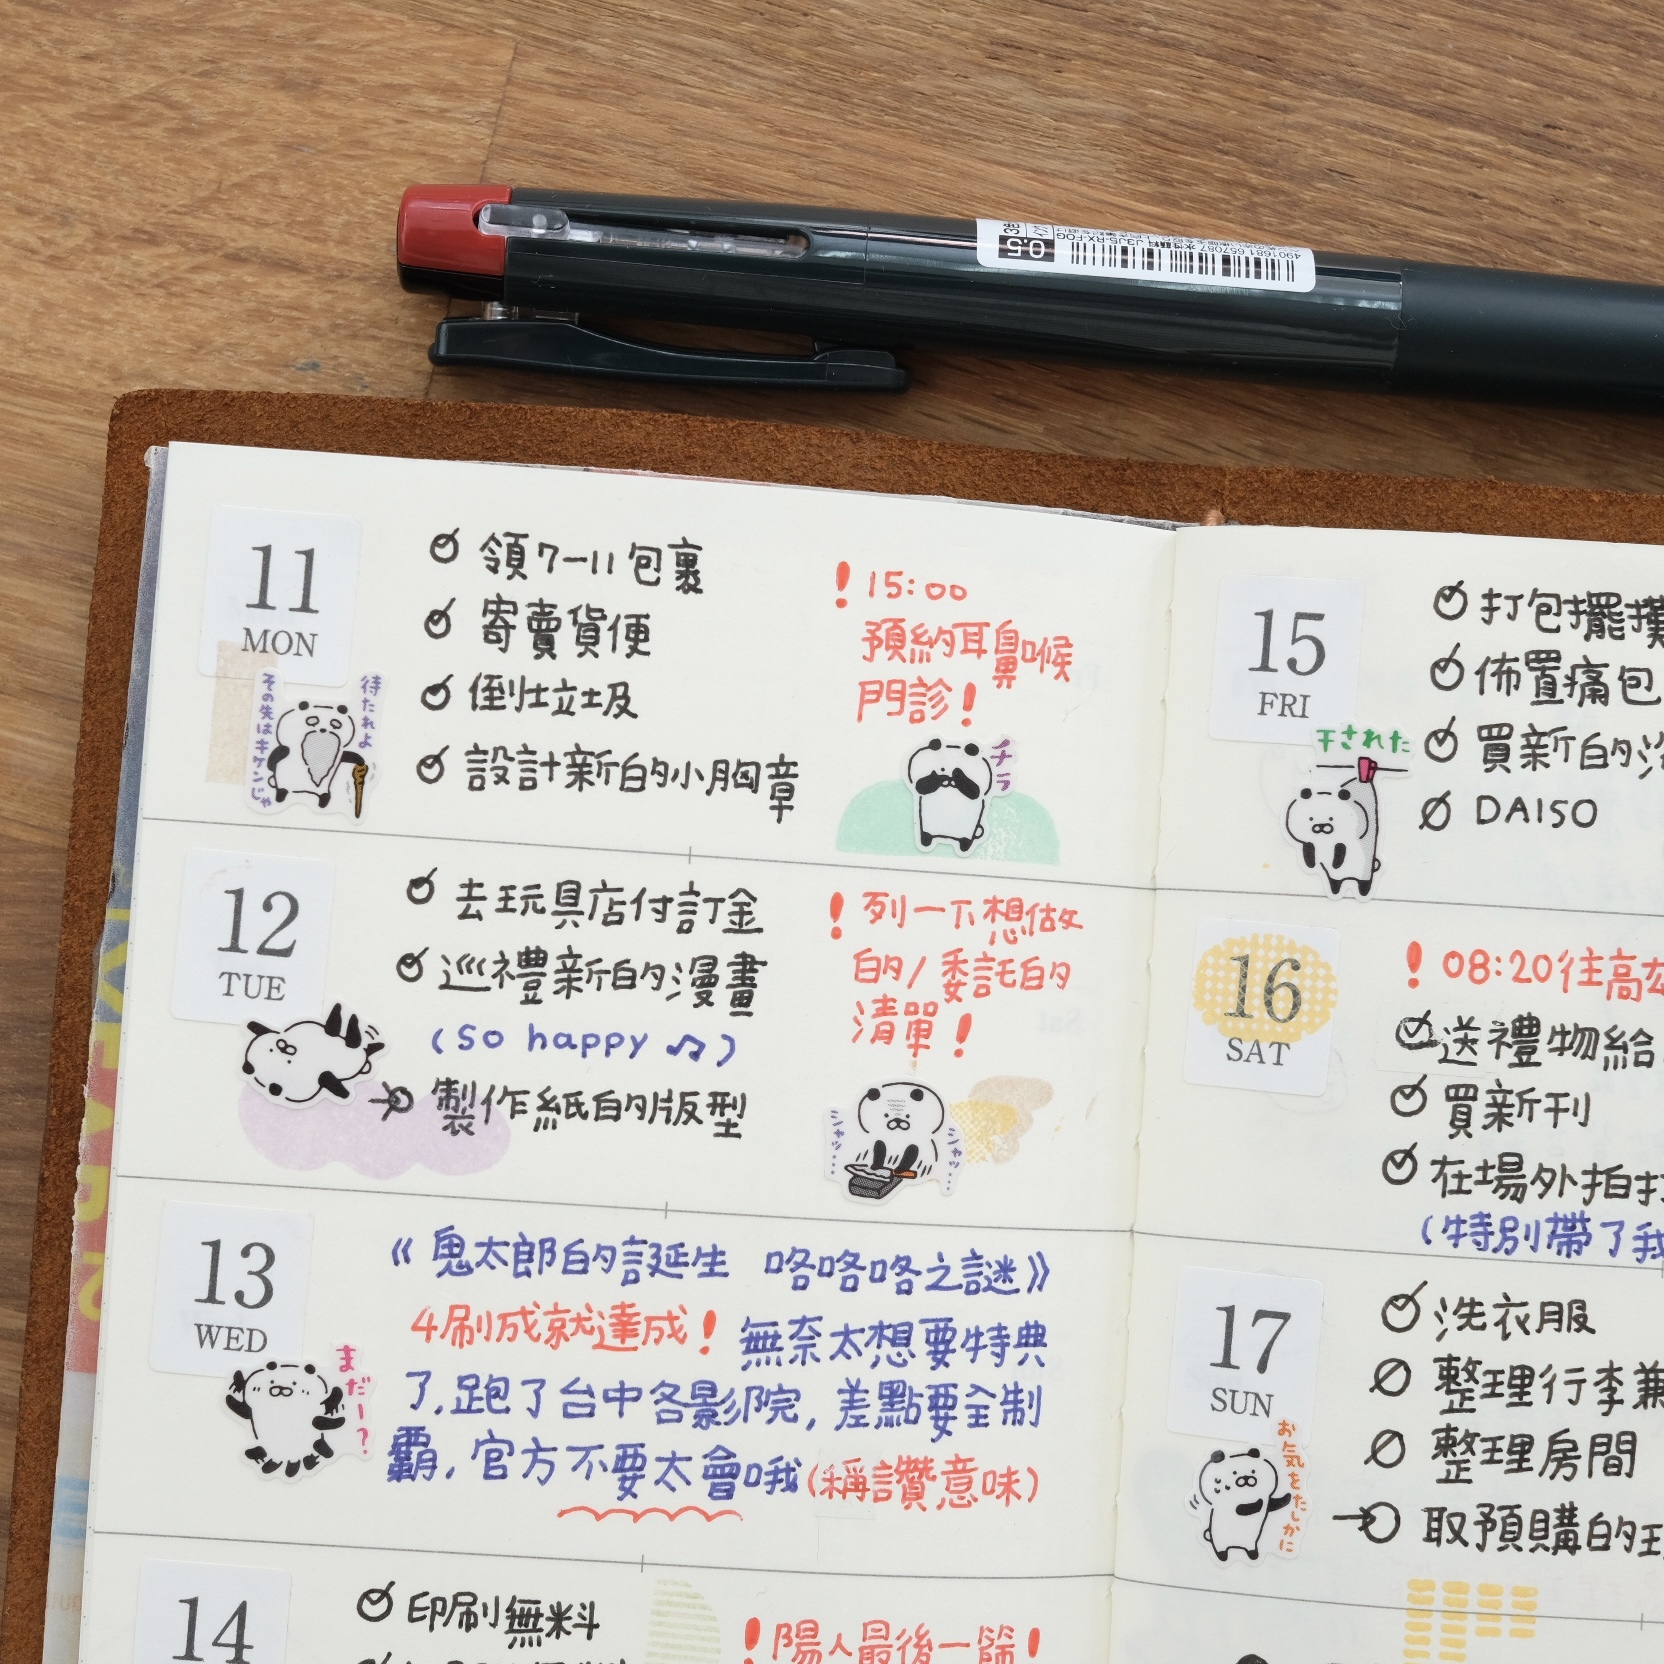 0.5
J3J5-RX-FOG
4901681657087
11
MON
領7-11包裹
寄賣貨便
倒垃圾
設計新的小胸章
!15:00
預約耳鼻喉
門診!
待たれよ
その先はキケンじゃ
チラ
12
TUE
去玩具店付訂金
巡禮新的漫畫
(so happy ♫)
製作紙的版型
!列一下想做
的/委託的
清單!
シャッ…
シャッ…
13
WED
《鬼太郎的誕生 咯咯咯之謎》
4刷成就達成!無奈太想要特典
了,跑了台中各影院,差點要全制
霸,官方不要太會哦(稱讚意味)
まだー?
14
印刷無料
!陽人最後一篩!
15
FRI
打包擺攤
佈置痛包
買新的
DAISO
干された
16
SAT
!08:20往高
送禮物給
買新刊
在場外拍
(特別帶了我
17
SUN
洗衣服
整理行李兼
整理房間
取預購的
お気をたしかに